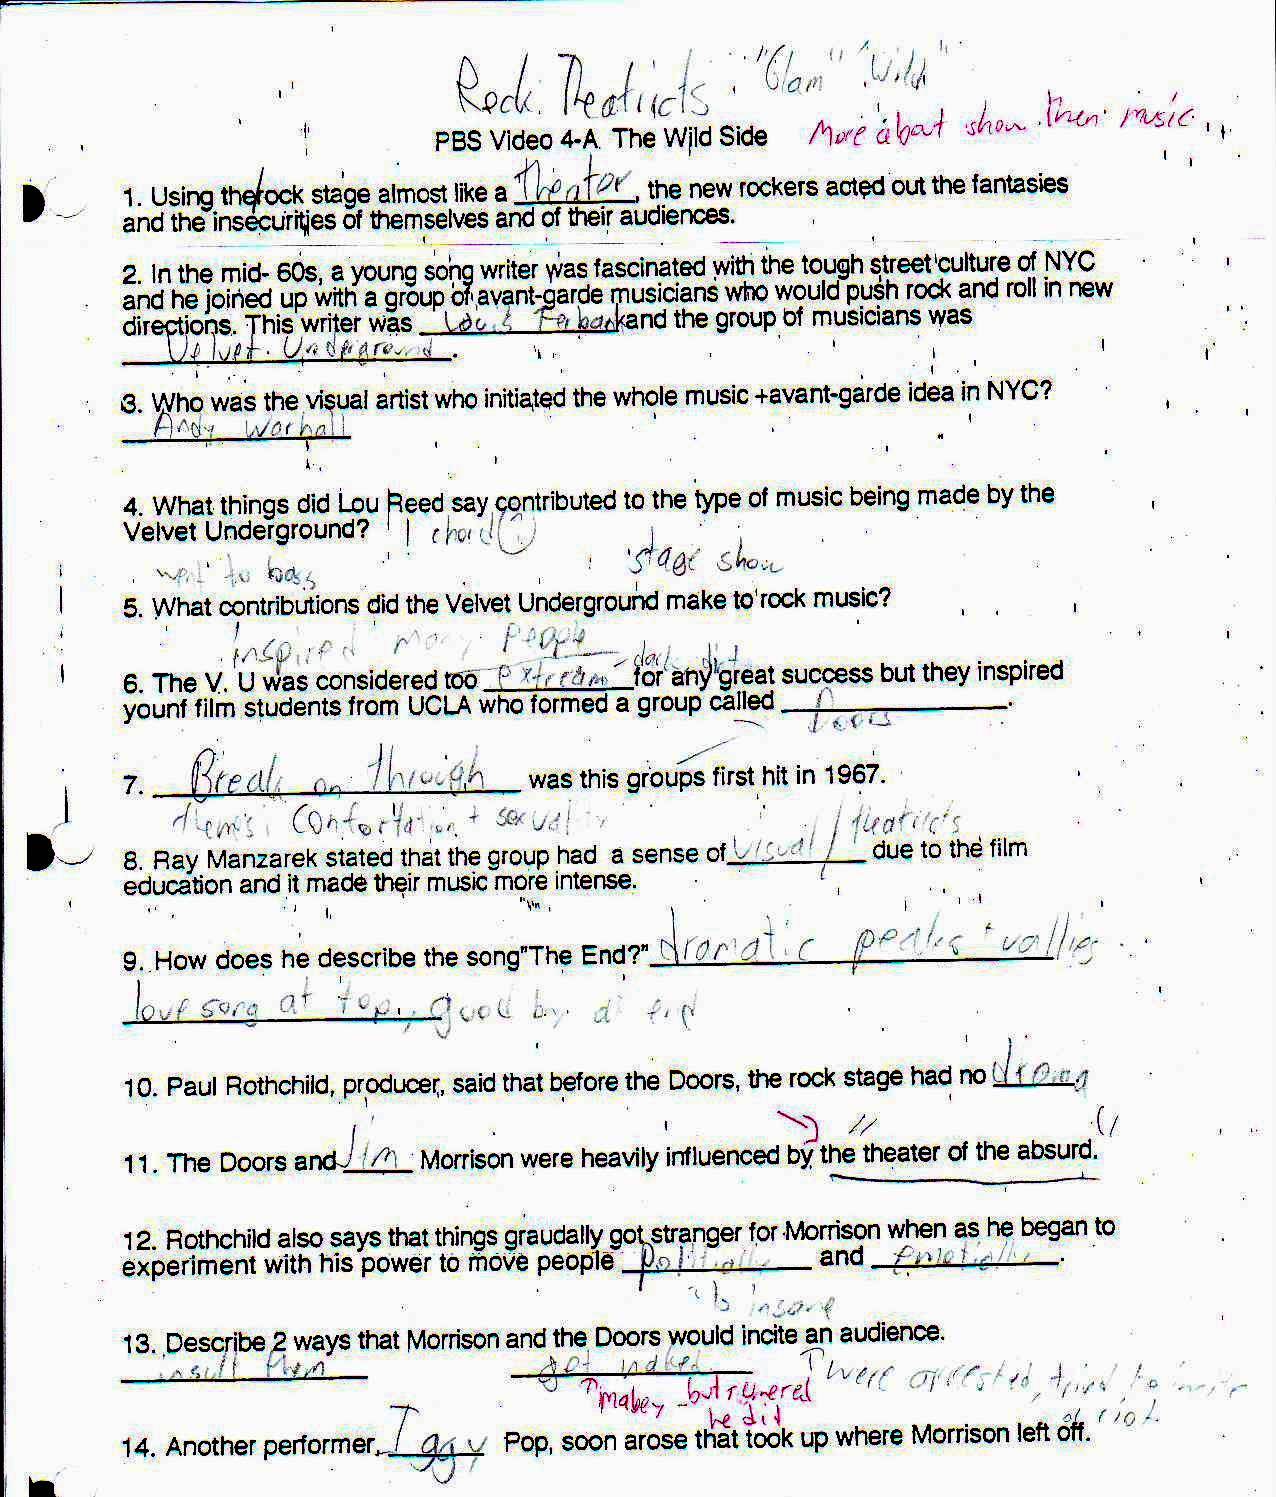 Rock Theatricts "Glam" "Wild"
PBS Video 4-A The Wild Side More about show then music
1. Using the rock stage almost like a Theator, the new rockers acted out the fantasies
and the insecurities of themselves and of their audiences.
2. In the mid- 60s, a young song writer was fascinated with the tough street culture of NYC
and he joined up with a group of avant-garde musicians who would push rock and roll in new
directions. This writer was Louis and the group of musicians was
Velvet Underground.
3. Who was the visual artist who initiated the whole music +avant-garde idea in NYC?
Andy Warhall
4. What things did Lou Reed say contributed to the type of music being made by the
Velvet Underground? 1 chord
went to bass stage show
5. What contributions did the Velvet Underground make to rock music?
inspired many people
6. The V. U was considered too extream - dark for any great success but they inspired
younf film students from UCLA who formed a group called Doors.
7. Break on through was this groups first hit in 1967.
+ sexuality
8. Ray Manzarek stated that the group had a sense of visual / theatricts due to the film
education and it made their music more intense.
9. How does he describe the song"The End?" dramatic peaks + vallies
love song at top, good by at end
10. Paul Rothchild, producer, said that before the Doors, the rock stage had no drama
11. The Doors and Jim Morrison were heavily influenced by "the theater of the absurd."
12. Rothchild also says that things graudally got stranger for Morrison when as he began to
experiment with his power to move people and
insane
13. Describe 2 ways that Morrison and the Doors would incite an audience.
insult them got naked were arrested, tried to
mabey but he did riot
14. Another performer, Iggy Pop, soon arose that took up where Morrison left off.